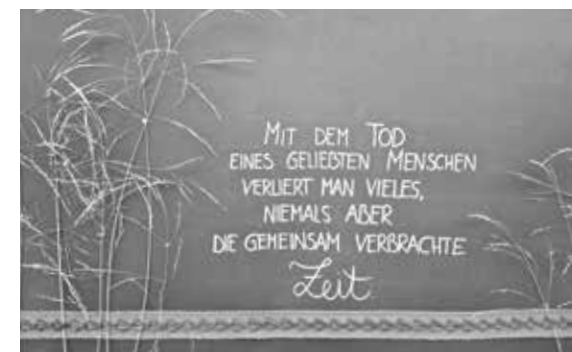 MIT DEM TOD
EINES GELIEBTEN MENSCHEN
VERLIERT MAN VIELES,
NIEMALS ABER
DIE GEMEINSAM VERBRACHTE
Zeit